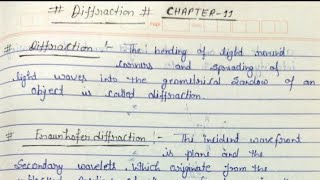 # Diffraction # CHAPTER-11
# Diffraction :- The bending of light round
corners and spreading of
light waves into the geometrical Sandow of an
object is called diffraction
# Fraunhofer diffraction :- The incident wavefront
is plane and the
Secondary wavelets, Which originate from the